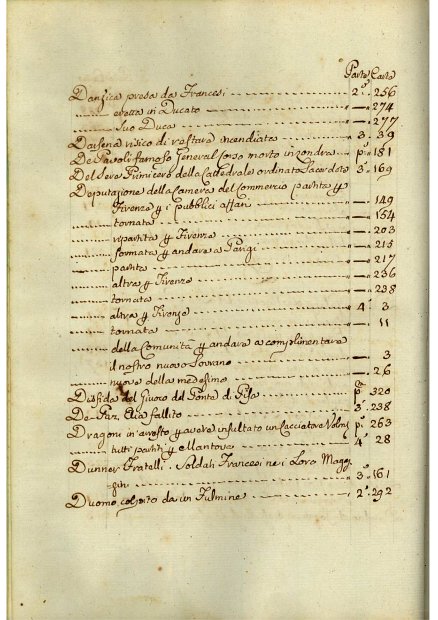 Parte Carte
Danzica presa da Francesi 2ª 256
eretta in Ducato " 274
suo Duca " 277
Darsena risico di restare incendiata 3ª 39
De Paoli famoso General Corso morto in Londra pª 181
Del Sere Primicero della Cattedrale ordinato Sacerdote 3ª 169
Deputazione della Camera del Commercio partita p
Firenze p i pubblici affari " 149
tornata " 154
ripartita p Firenze " 203
formata p andare a Parigi " 215
partita " 217
altra p Firenze " 236
tornata " 238
altra p Firenze 4ª 3
tornata " 11
della Comunità p andare a complimentare
il nostro nuovo Sovrano " 3
nuove della medesima " 26
Disfida del Giuoco del Ponte di Pisa pª 320
De Paz Elia fallito 3ª 238
Dragoni in arresto p avere insultato un Cacciatore pª 263
tutti partiti p Mantova 4ª 28
Dunner Fratelli. Soldati Francesi ne i Loro Magaz
zini 3ª 161
Duomo colpito da un Fulmine 2ª 292